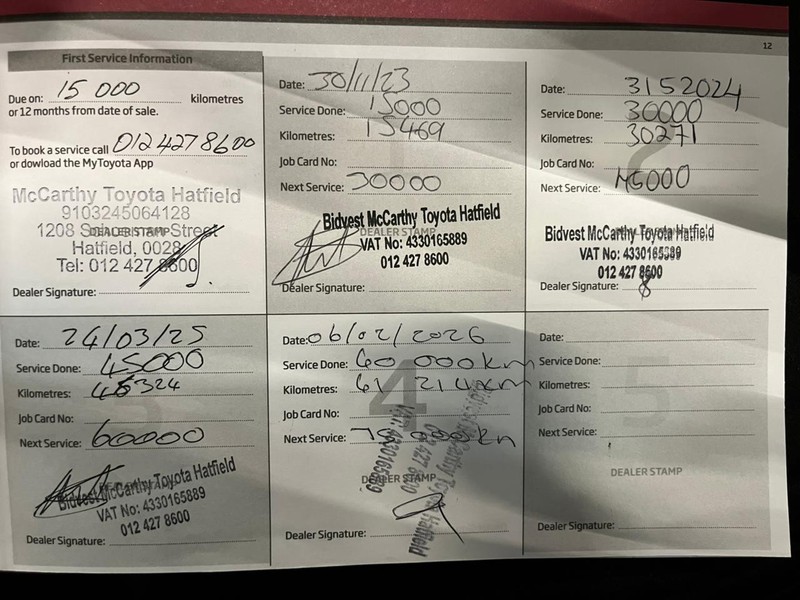 12
First Service Information
Due on: 15 000 kilometres
or 12 months from date of sale.
To book a service call 012 427 8600
or dowload the MyToyota App
McCarthy Toyota Hatfield
9103245064128
1208 Street
DEALER STAMP
Hatfield, 0028
Tel: 012 427 8600
Dealer Signature:
Date: 30/11/23
Service Done: 15000
Kilometres: 15469
Job Card No:
Next Service: 30000
Bidvest McCarthy Toyota Hatfield
DEALER STAMP
VAT No: 4330165889
012 427 8600
Dealer Signature:
2
Date: 3152024
Service Done: 30000
Kilometres: 30271
Job Card No:
Next Service: 45000
Bidvest McCarthy Toyota Hatfield
VAT No: 4330165889
012 427 8600
Dealer Signature:
3
Date: 24/03/25
Service Done: 45000
Kilometres: 45324
Job Card No:
Next Service: 60000
Bidvest McCarthy Toyota Hatfield
VAT No: 4330165889
012 427 8600
Dealer Signature:
4
Date: 06/02/2026
Service Done: 60 000km
Kilometres: 61 214km
Job Card No:
Next Service: 75 000km
DEALER STAMP
Bidvest McCarthy Toyota Hatfield
VAT: 4330165889
012 427 8600
Dealer Signature:
5
Date:
Service Done:
Kilometres:
Job Card No:
Next Service:
DEALER STAMP
Dealer Signature: